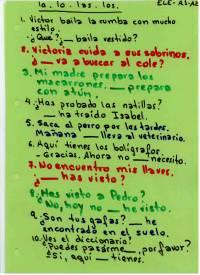 la. lo. las. los.
ELE-A1-A2
1. Victor baila la rumba con mucho
estilo.
¿Qué? ¿__ baila vestido?
2. Victoria cuida a sus sobrinos.
¿__ va a buscar al cole?
3. Mi madre prepara los
macarrones. __ prepara
con atún.
4. ¿Has probado las natillas?
__ ha traído Isabel.
5. Saca el perro por las tardes.
Mañana __ lleva al veterinario.
6. Aquí tienes los bolígrafos.
- Gracias. Ahora no __ necesito.
7. No encuentro mis llaves.
¿__ has visto?
8. ¿Has visto a Pedro?
- No, hoy no __ he visto.
9. ¿Son tus gafas? __ he
encontrado en el suelo.
10. ¿Ves el diccionario?
¿Puedes pasárme__, por favor?
- Sí, aquí __ tienes.